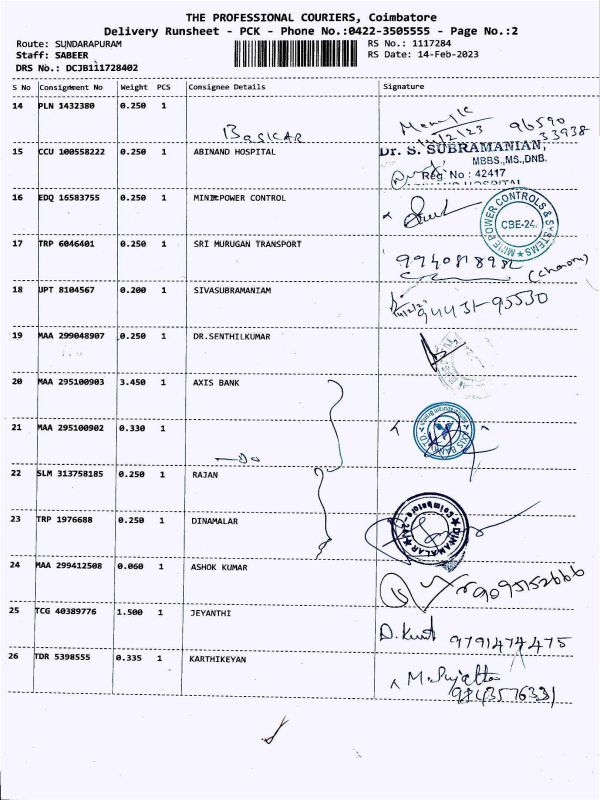 THE PROFESSIONAL COURIERS, Coimbatore
Delivery Runsheet - PCK - Phone No.:0422-3505555 - Page No.:2
Route: SUNDARAPURAM
Staff: SABEER
DRS No.: DCJB111728402
RS No.: 1117284
RS Date: 14-Feb-2023
S No Consignment No Weight PCS Consignee Details Signature
14 PLN 1432380 0.250 1
BASKAR
96590
33938
15 CCU 100558222 0.250 1 ABINAND HOSPITAL
Dr. S. SUBRAMANIAN,
MBBS.,MS.,DNB.
Reg No : 42417
16 EDQ 16583755 0.250 1 MINE POWER CONTROL
MINE POWER CONTROLS & SYSTEMS
CBE-24.
17 TRP 6046401 0.250 1 SRI MURUGAN TRANSPORT
18 UPT 8104567 0.200 1 SIVASUBRAMANIAM
94431-95530
19 MAA 299048907 0.250 1 DR.SENTHILKUMAR
20 MAA 295100903 3.450 1 AXIS BANK
21 MAA 295100902 0.330 1
AXIS BANK LTD
22 SLM 313758185 0.250 1 RAJAN
23 TRP 1976688 0.250 1 DINAMALAR
DINAMALAR Coimbatore
24 MAA 299412508 0.060 1 ASHOK KUMAR
9095152666
25 TCG 40389776 1.500 1 JEYANTHI
9791474475
26 TDR 5398555 0.335 1 KARTHIKEYAN